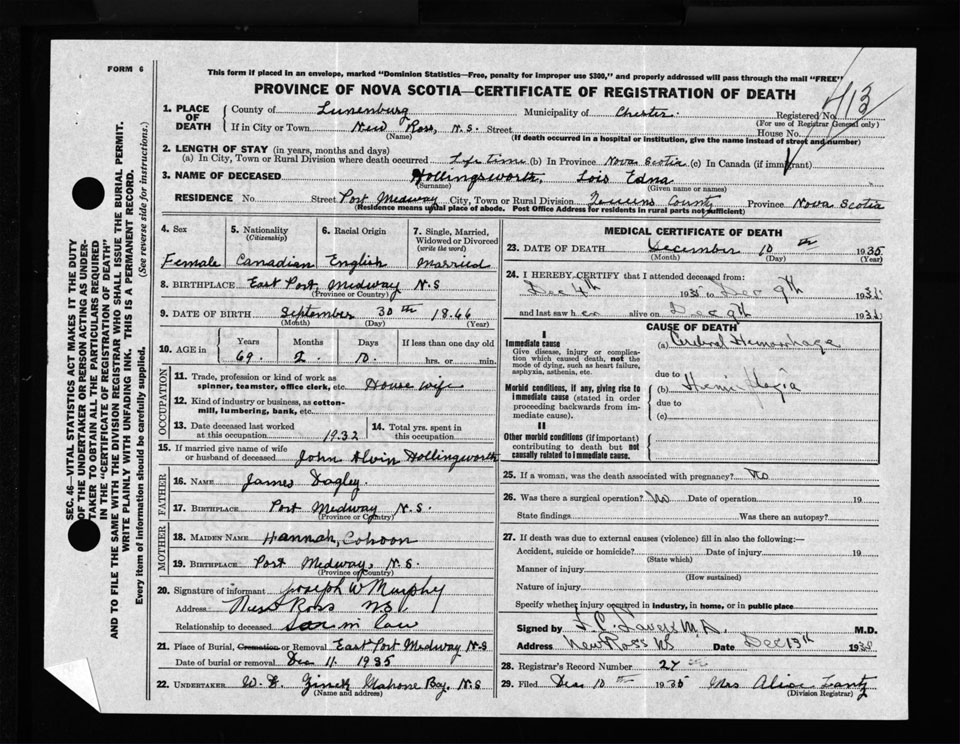 FORM 6
This form if placed in an envelope, marked "Dominion Statistics—Free, penalty for improper use $300," and properly addressed will pass through the mail "FREE"
PROVINCE OF NOVA SCOTIA—CERTIFICATE OF REGISTRATION OF DEATH
413
1. PLACE OF DEATH
County of Lunenburg Municipality of Chester. Registered No.
(For use of Registrar General only)
If in City or Town New Ross, N.S. Street House No.
(Name) (If death occurred in a hospital or institution, give the name instead of street and number)
2. LENGTH OF STAY (in years, months and days)
(a) In City, Town or Rural Division where death occurred Life time (b) In Province Nova Scotia (c) In Canada (if immigrant)
3. NAME OF DECEASED Hollingsworth, Lois Edna
(Surname) (Given name or names)
RESIDENCE No. Street Port Medway City, Town or Rural Division Queens County Province Nova Scotia
(Residence means usual place of abode. Post Office Address for residents in rural parts not sufficient)
4. Sex 5. Nationality (Citizenship) 6. Racial Origin 7. Single, Married, Widowed or Divorced (write the word)
Female Canadian English Married
8. BIRTHPLACE East Port Medway N.S
(Province or Country)
9. DATE OF BIRTH September 30th 1866
(Month) (Day) (Year)
10. AGE in Years Months Days If less than one day old
69. 2. 10. hrs. or min.
OCCUPATION
11. Trade, profession or kind of work as spinner, teamster, office clerk, etc. House wife
12. Kind of industry or business, as cotton-mill, lumbering, bank, etc.
13. Date deceased last worked at this occupation 1932 14. Total yrs. spent in this occupation
15. If married give name of wife or husband of deceased John Alvin Hollingworth
FATHER
16. NAME James Dagley.
17. BIRTHPLACE Port Medway N.S.
(Province or Country)
MOTHER
18. MAIDEN NAME Hannah, Cohoon
19. BIRTHPLACE Port Medway, N.S.
(Province or Country)
20. Signature of informant Joseph W Murphy
Address New Ross N.S.
Relationship to deceased Son in law
21. Place of Burial, Cremation or Removal East Port Medway N.S
Date of burial or removal Dec 11. 1935
22. UNDERTAKER W. Zinck Mahone Bay, N.S
(Name and address)
MEDICAL CERTIFICATE OF DEATH
23. DATE OF DEATH December 10th 1935
(Month) (Day) (Year)
24. I HEREBY CERTIFY that I attended deceased from:
Dec 4th 1935 to Dec 9th 1935
and last saw her alive on Dec 9th 1935
CAUSE OF DEATH
I
Immediate cause
Give disease, injury or complication which caused death, not the mode of dying, such as heart failure, asphyxia, asthenia, etc.
(a) Cerebral Hemorrhage
due to
Morbid conditions, if any, giving rise to immediate cause (stated in order proceeding backwards from immediate cause).
(b) Hemi Plegia
due to
(c)
II
Other morbid conditions (if important) contributing to death but not causally related to immediate cause.
25. If a woman, was the death associated with pregnancy? No
26. Was there a surgical operation? No Date of operation 19
State findings Was there an autopsy?
27. If death was due to external causes (violence) fill in also the following:—
Accident, suicide or homicide? Date of injury 19
(State which)
Manner of injury
(How sustained)
Nature of injury
Specify whether injury occurred in industry, in home, or in public place
Signed by M.D. M.D.
Address New Ross NS Date Dec 13th 193
28. Registrar's Record Number 27
29. Filed Dec 10th 1935 Mrs Alice Lantz
(Division Registrar)
SEC. 46—VITAL STATISTICS ACT MAKES IT THE DUTY
OF THE UNDERTAKER OR PERSON ACTING AS UNDERTAKER TO OBTAIN ALL THE PARTICULARS REQUIRED
IN THE "CERTIFICATE OF REGISTRATION OF DEATH"
AND TO FILE THE SAME WITH THE DIVISION REGISTRAR WHO SHALL ISSUE THE BURIAL PERMIT.
WRITE PLAINLY WITH UNFADING INK. THIS IS A PERMANENT RECORD.
Every item of information should be carefully supplied. (See reverse side for instructions.)